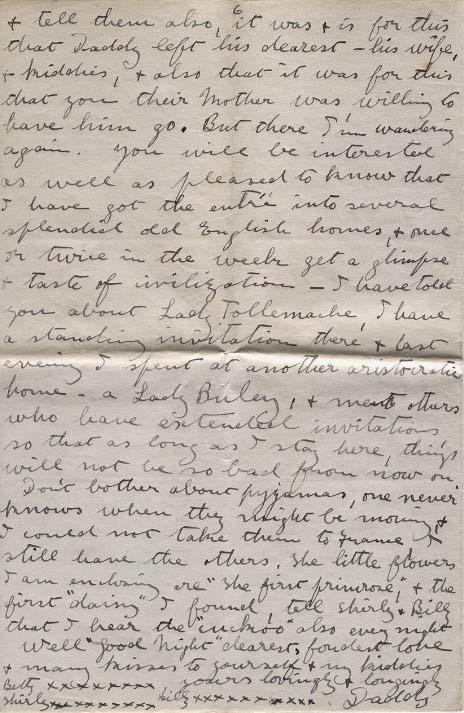 & tell them also, it was & is for this
that Daddy left his dearest - his wife,
& kiddies, & also that it was for this
that you their Mother was willing to
have him go. But there I'm wandering
again. You will be interested
as well as pleased to know that
I have got the entré into several
splendid old English homes, & once
or twice in the week get a glimpse
& taste of civilization - I have told
you about Lady Tollemache, I have
a standing invitation there & last
evening I spent at another aristocratic
home - a Lady & met others
who have extended invitations
so that as long as I stay here, things
will not be so bad from now on.
Don't bother about pyjamas, one never
knows when they might be moving &
I could not take them to France I
still have the others. The little flowers
I am enclosing are "The first primrose", & the
first "daisy" I found, tell Shirly & Bill
that I hear the "cuckoo" also every night
Well "Good Night" dearest, fondest love
& many kisses to yourself & my kiddies
Betty xxxxxxxx yours lovingly & longingly
Shirly xxxxxxxx Billy xxxxxxxxxx. Daddy